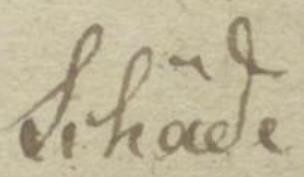 Schäde